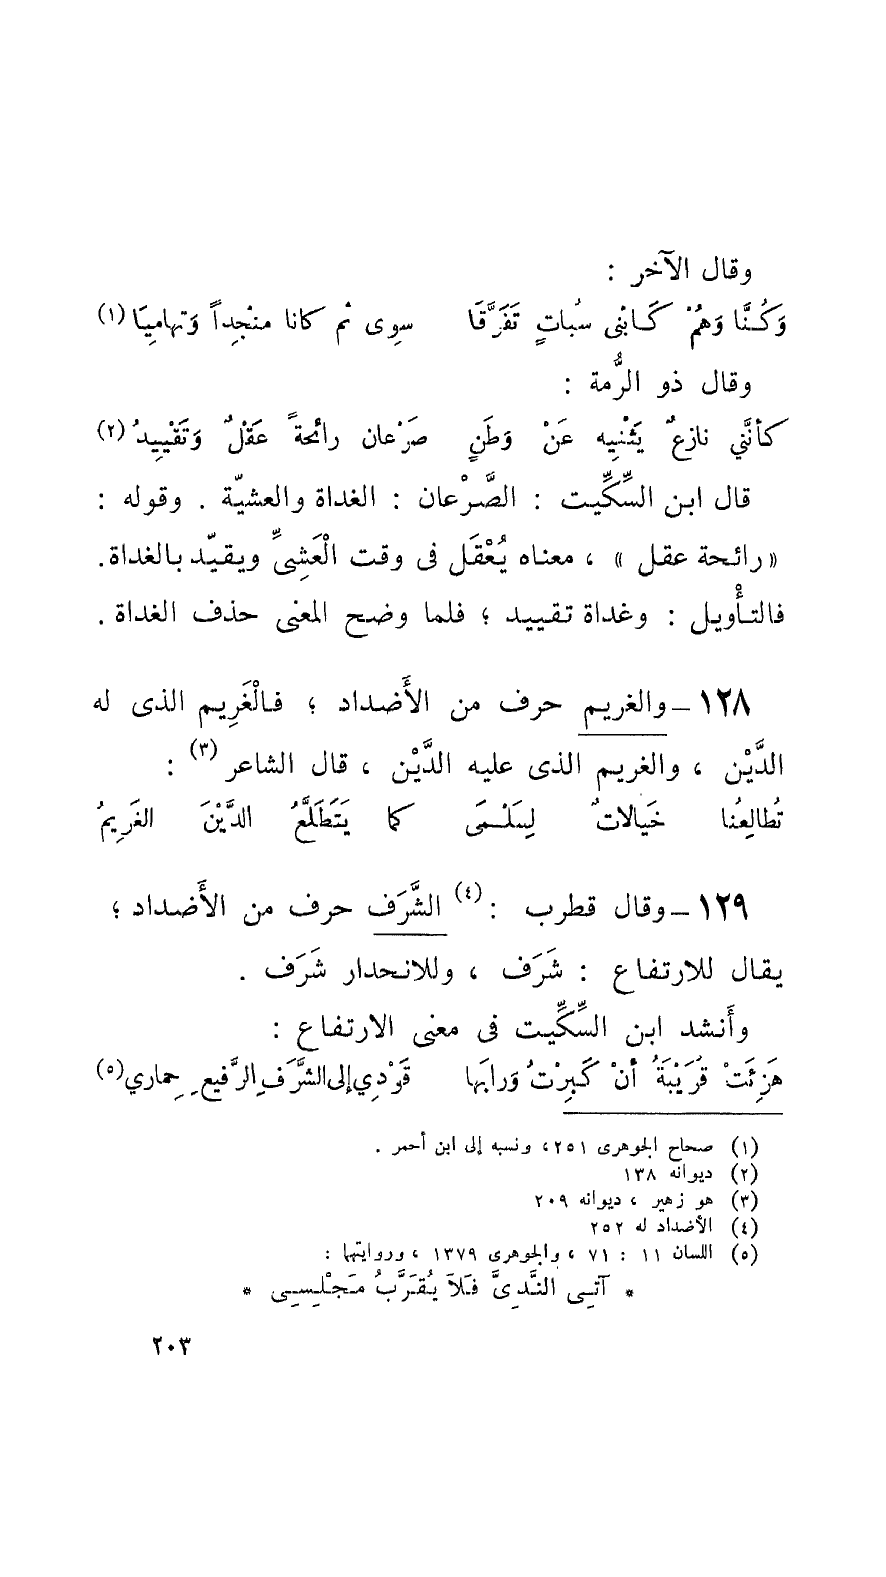 وقال الآخر :
وَكُنَّا وَهُمْ كَابْنَى سُباتٍ تَفَرَّقَا سِوى ثم كانا منْجِداً وَتهامِيَا (١)
وقال ذو الرُّمة :
كأنَّنِي نازعٌ يَثْنِيه عَنْ وَطَنٍ صَرْعان رائحةً عَقْلٌ وَتَقْيِيدُ (٢)
قال ابن السِّكِّيت : الصَّرْعان : الغداة والعشيّة . وقوله :
« رائحة عقل » ، معناه يُعْقَل فى وقت الْعَشِىِّ ويقيّد بالغداة .
فالتأْويل : وغداة تقييد ؛ فلما وضح المعنى حذف الغداة .
١٢٨ – والغريم حرف من الأَضداد ؛ فالْغَرِيم الذى له
الدَّيْن ، والغريم الذى عليه الدَّيْن ، قال الشاعر (٣) :
تُطالِعُنا خَيالاتٌ لِسَلْمَى كما يَتَطَلَّعُ الدَّيْنَ الغَرِيمُ
١٢٩ – وقال قطرب : (٤) الشَّرَف حرف من الأَضداد ؛
يقال للارتفاع : شَرَف ، وللانحدار شَرَف .
وأَنشد ابن السِّكِّيت فى معنى الارتفاع :
هَزِئَتْ قُرَيْبَةُ أَنْ كَبِرْتُ وَرابَها قَوْدِي إلى الشَّرَفِ الرَّفيعِ حِماري (٥)
(١) صحاح الجوهرى ٢٥١ ، ونسبه إلى ابن أحمر .
(٢) ديوانه ١٣٨
(٣) هو زهير ، ديوانه ٢٠٩
(٤) الأضداد له ٢٥٢
(٥) اللسان ١١ : ٧١ ، والجوهرى ١٣٧٩ ، وروايتها :
* آتِى النَّدِىَّ فَلاَ يُقَرَّبُ مَجْلِسِى *
٢٠٣